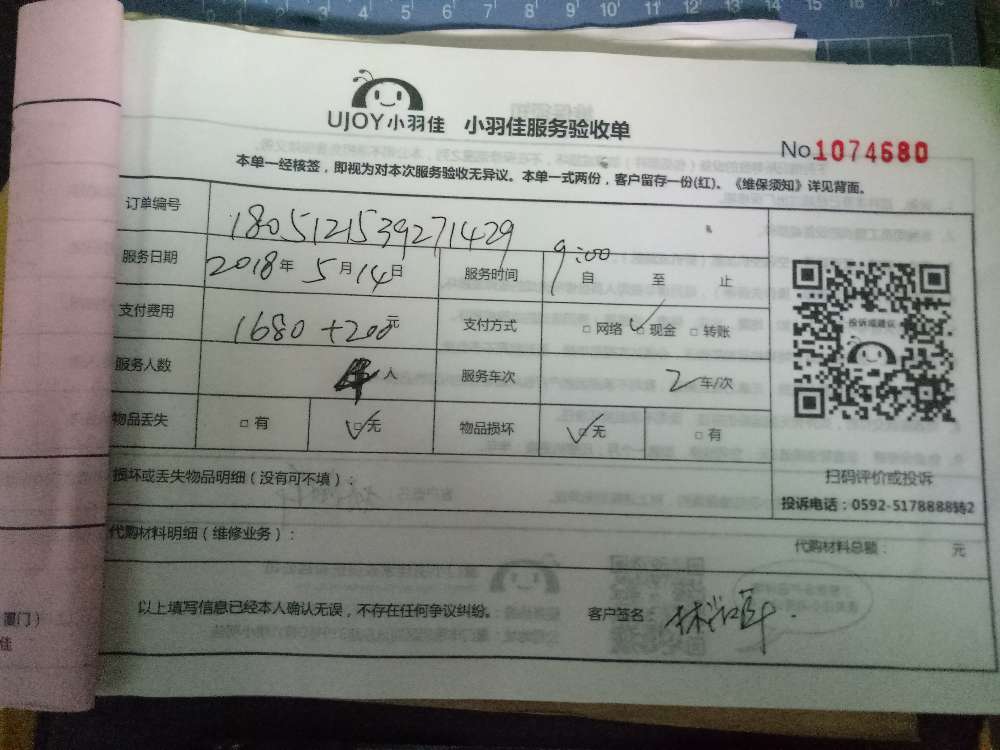 UJOY小羽佳 小羽佳服务验收单
No.1074680
本单一经核签，即视为对本次服务验收无异议。本单一式两份，客户留存一份(红)。《维保须知》详见背面。
订单编号 180512153927 1429
服务日期 2018年5月14日 服务时间 9:00 自 至 止
支付费用 1680+200元 支付方式 □网络 □现金 □转账
服务人数 4人 服务车次 2车/次
物品丢失 □有 □无 物品损坏 □无 □有
投诉或建议
扫码评价或投诉
投诉电话：0592-5178888转2
损坏或丢失物品明细（没有可不填）：
代购材料明细（维修业务）：
代购材料总额： 元
以上填写信息已经本人确认无误，不存在任何争议纠纷。 客户签名
厦门）
佳